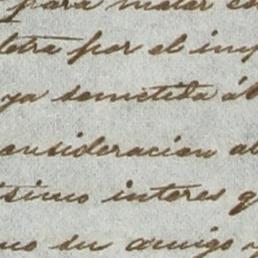 para matar
letra por el imp
ya sometida á
consideracion
simo interes q
su amigo y